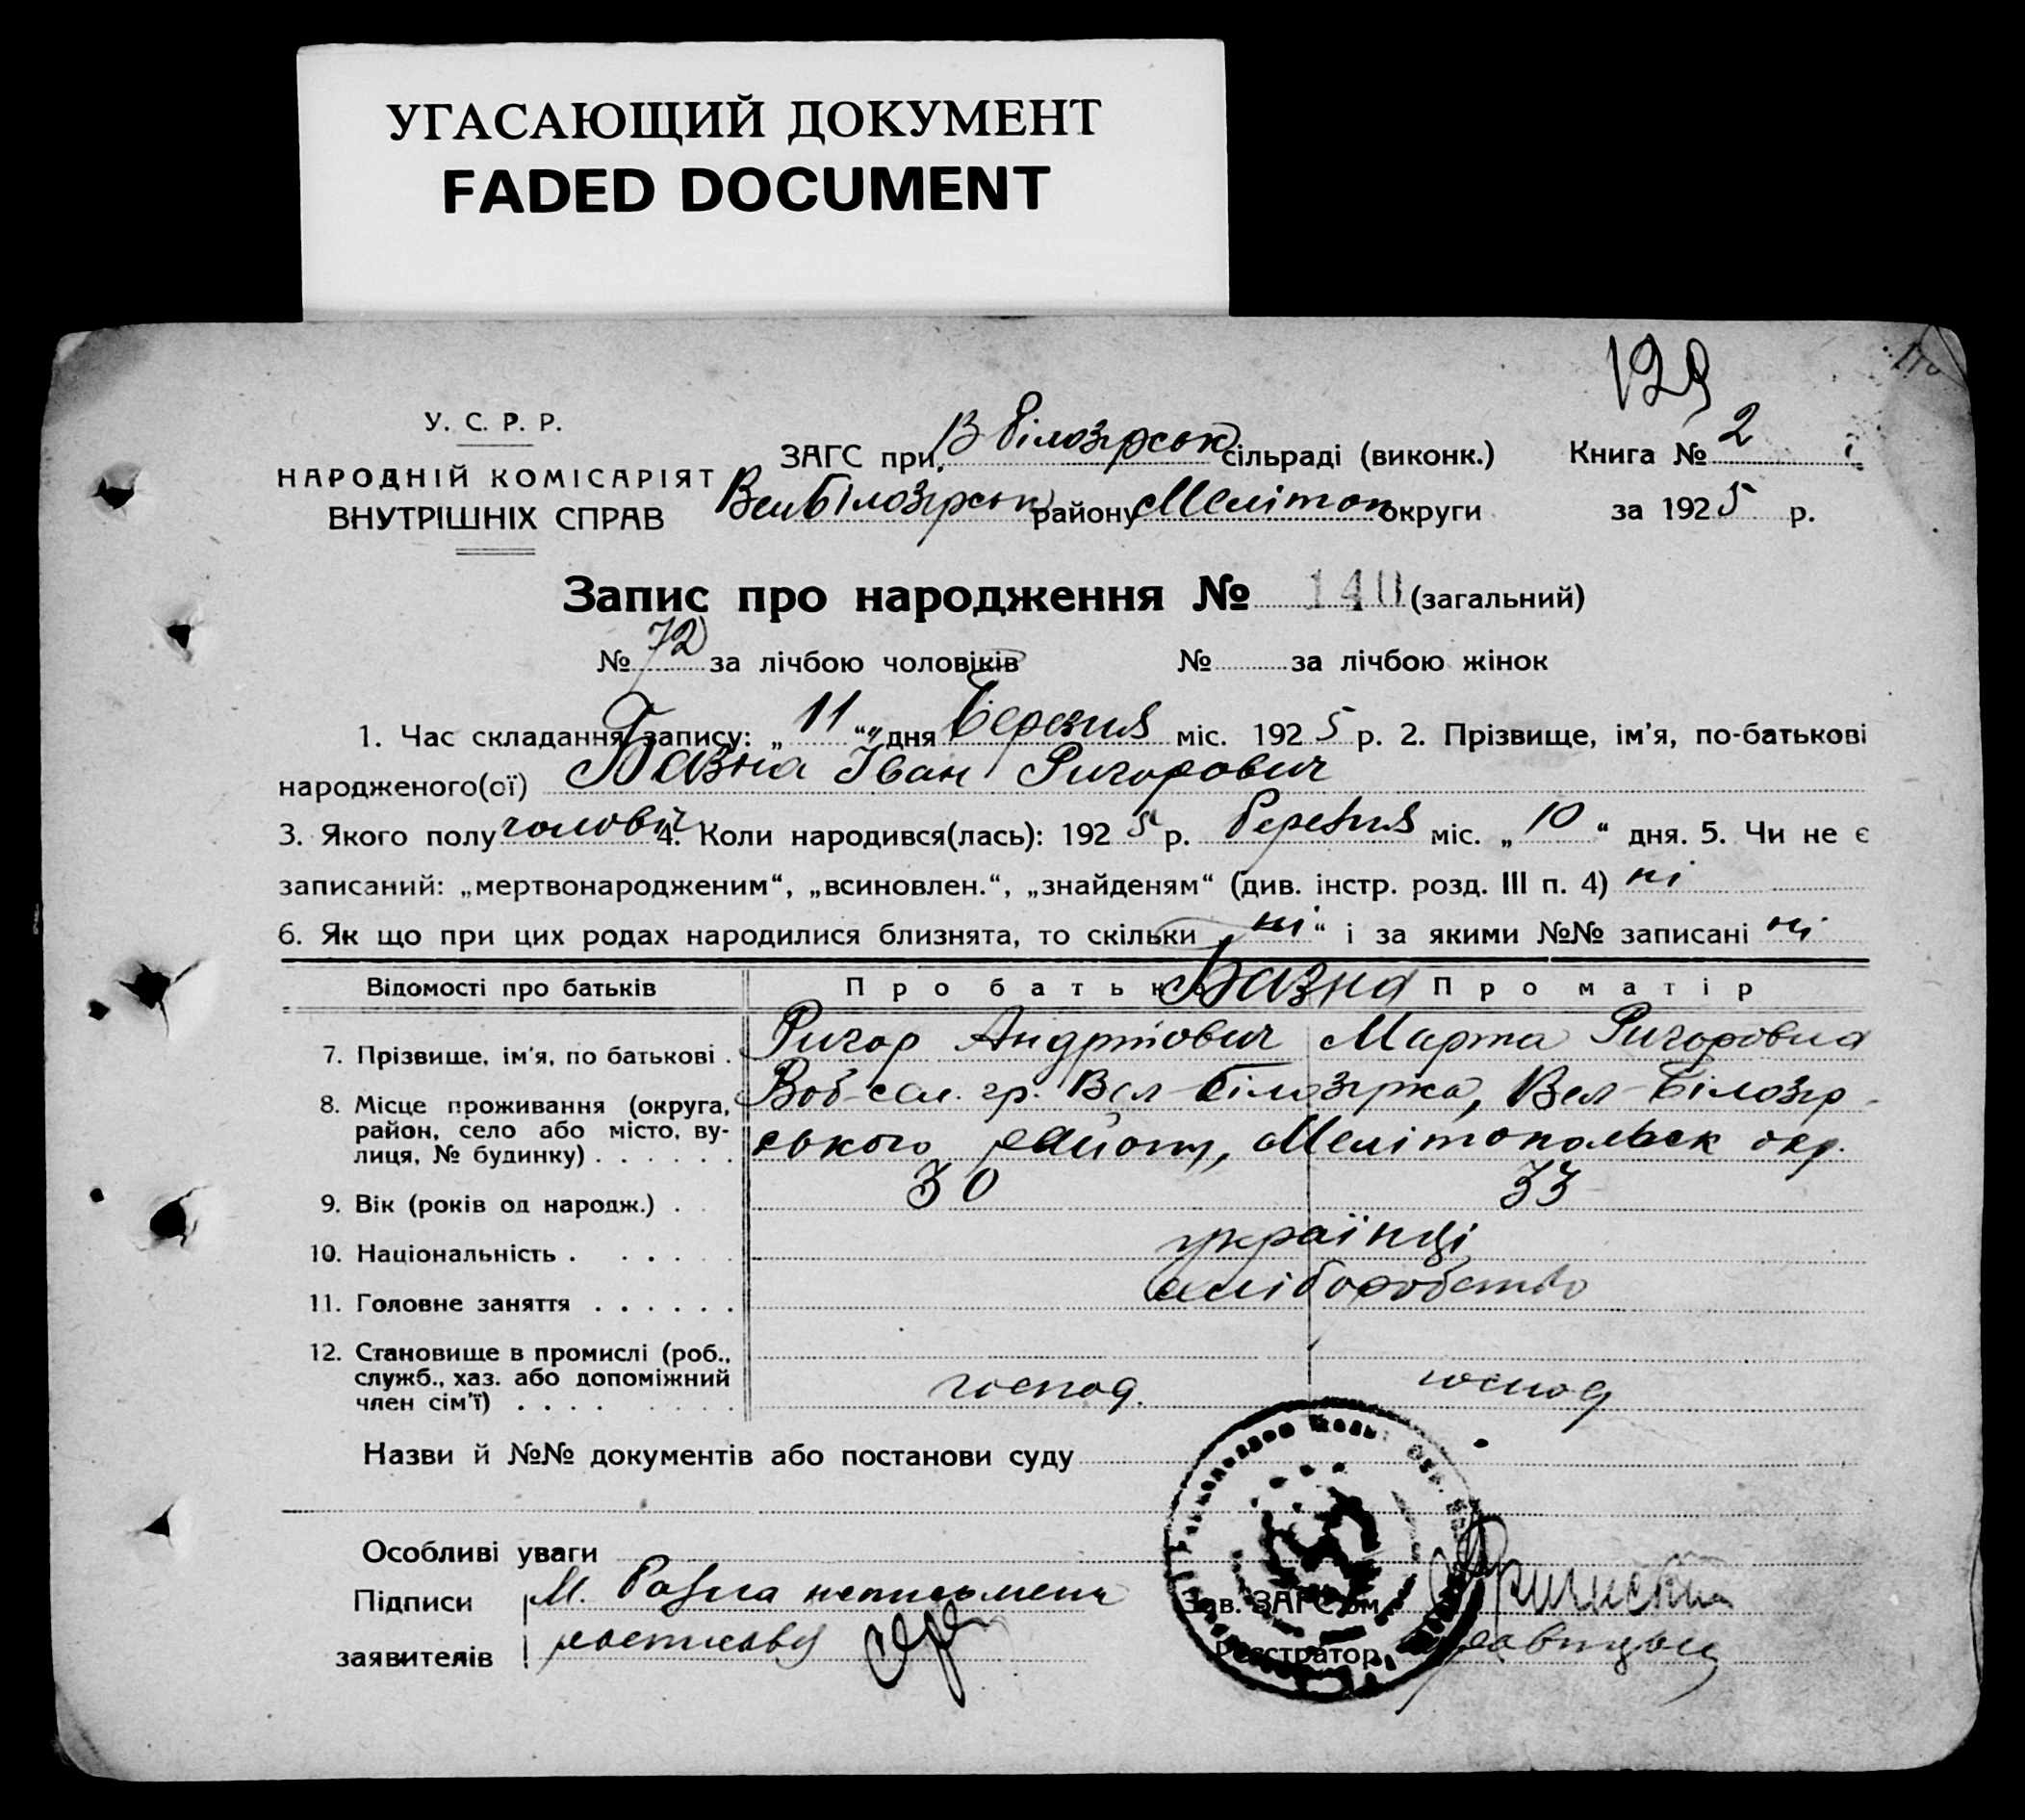 УГАСАЮЩИЙ ДОКУМЕНТ
FADED DOCUMENT
129
У. С. Р. Р.
НАРОДНІЙ КОМІСАРІЯТ
ВНУТРІШНІХ СПРАВ
ЗАГС при В Білозірськ сільраді (виконк.) Книга № 2
Вел Білозірськ району Мелітоп округи за 1925 р.
Запис про народження № 140 (загальний)
№ 72 за лічбою чоловіків № за лічбою жінок
1. Час складання запису: „ 11 “ дня березня міс. 1925 р. 2. Прізвище, ім'я, по-батькові
народженого(ої) Базна Іван Ригорович
3. Якого полу чоловіч 4. Коли народився(лась): 1925 р. березня міс. „ 10 “ дня. 5. Чи не є
записаний: „мертвонародженим“, „всиновлен.“, „знайденям“ (див. інстр. розд. III п. 4) ні
6. Як що при цих родах народилися близнята, то скільки „ ні “ і за якими №№ записані ні
Відомості про батьків Про батька Базна Про матір
7. Прізвище, ім'я, по батькові . Ригор Андрійович Марта Ригоровна
8. Місце проживання (округа, район, село або місто, вулиця, № будинку) . . . . . . гр. Вел-Білозірка, Вел-Білозір-
ського району, Мелітопольск окр.
9. Вік (років од народж.) . . 30 33
10. Національність . . . . . українці
11. Головне заняття . . . . . . хліборобство
12. Становище в промислі (роб., служб., хаз. або допоміжний член сім'ї) . . . . господ. господ
Назви й №№ документів або постанови суду
Особливі уваги
Підписи М. Базна неписьмен
заявителів
Зав. ЗАГС'ом
Реєстратор